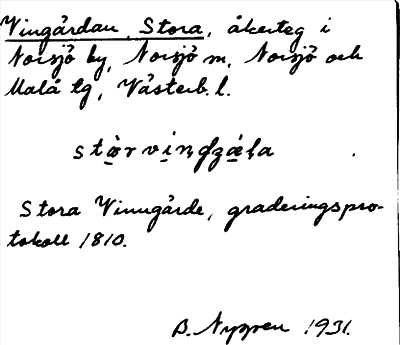 Vingårdan, Stora, åkerteg i
Norsjö by, Norsjö sn, Norsjö och
Malå tg, Västerb. l.
Stora Vinngårde, graderingspro-
tokoll 1810.
B. Nygren 1931.